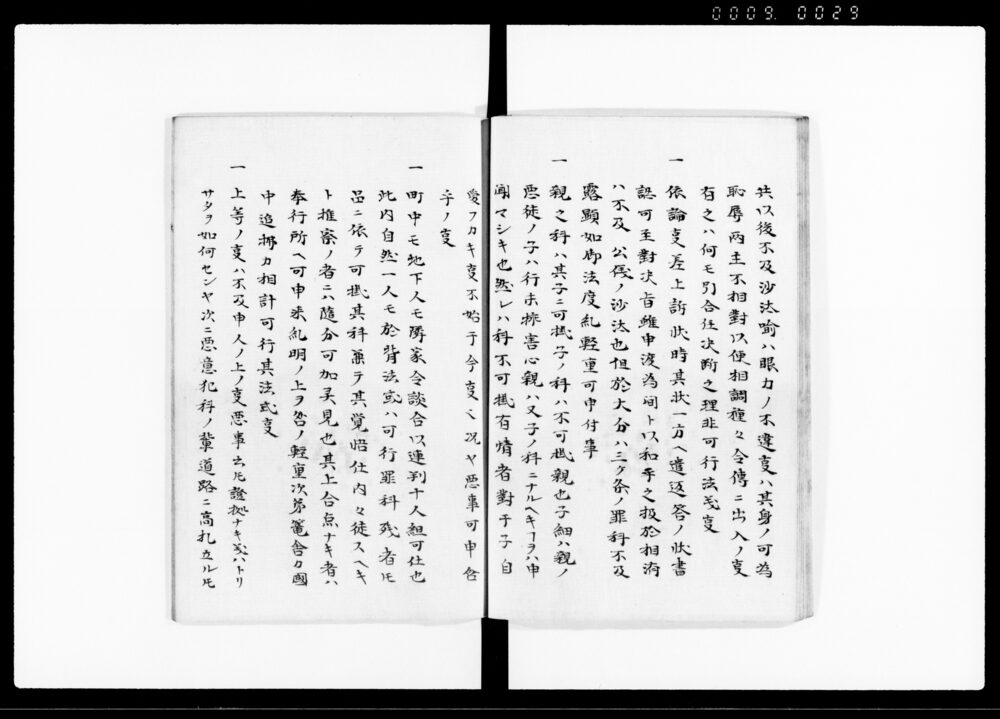 0009. 0029
共以後不及沙汰喩ハ眼力ノ不違𠮷ハ其身ノ可為
恥辱両主不相對以使相調種々令傳ニ出入ノ𠮷
有之ハ何モ引合任决断之理非可行法義𠮷
一 依論𠮷差上訴状時其状一方ヘ遣返答ノ状書
認可至對决旨雖申渡為同ト以和平之扱於相済
ハ不及 公儀ノ沙汰也但於大分ハ三ケ条ノ罪科不及
露顕如御法度糺軽重可申付事
一 親之科ハ其子ニ可掛子ノ科ハ不可掛親也子細ハ親ノ
悪徒ノ子ハ行末挾害心親ハ又子ノ科ニナルヘキヿヲハ申
聞マシキ也然レハ科不可掛有情者對于子自
愛フカキ𠮷不始于今𠮷也况ヤ悪事可申合
乎ノ𠮷
一 町中モ地下人モ隣家令談合以連判十人組可仕也
此内自然一人モ於背法或ハ可行罪科残者𪜈
品ニ依テ可掛其科兼テ其覚悟仕内々徒スヘキ
ト推察ノ者ニハ随分可加異見也其上合点ナキ者ハ
奉行所ヘ可申来糺明ノ上ヲ咎ノ軽重次第篭舎カ國
中追拂カ相計可行其法式𠮷
一 上等ノ𠮷ハ不及申人ノ上ノ𠮷悪事云𪜈證拠ナキ或ハトリ
サタヲ如何センヤ次ニ悪意犯科ノ輩道路ニ高札立ル𪜈